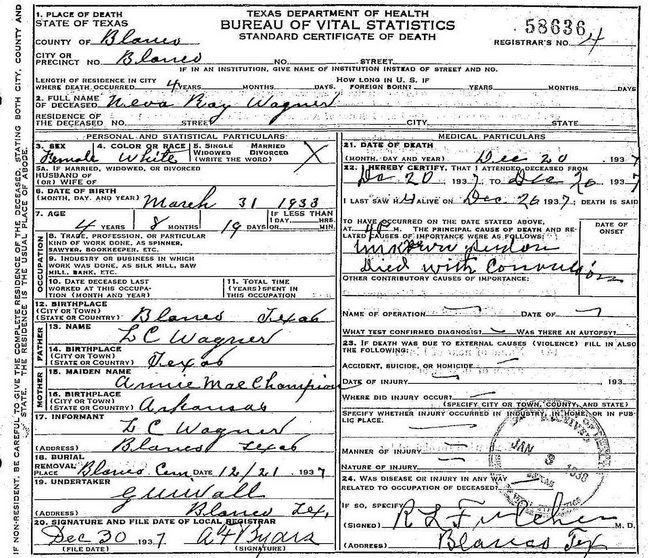 TEXAS DEPARTMENT OF HEALTH
BUREAU OF VITAL STATISTICS
STANDARD CERTIFICATE OF DEATH
58636
REGISTRAR'S NO. 4
IF NON-RESIDENT, BE CAREFUL TO GIVE COMPLETE RESIDENCE OF THE DECEASED, STATING BOTH CITY, COUNTY AND STATE. THE RESIDENCE IS THE USUAL PLACE OF ABODE.
1. PLACE OF DEATH
STATE OF TEXAS
COUNTY OF Blanco
CITY OR
PRECINCT NO. Blanco NO. STREET
IF IN AN INSTITUTION, GIVE NAME OF INSTITUTION INSTEAD OF STREET AND NO.
LENGTH OF RESIDENCE IN CITY
WHERE DEATH OCCURRED 4 YEARS MONTHS DAYS.
HOW LONG IN U. S. IF
FOREIGN BORN? YEARS MONTHS DAYS
2. FULL NAME
OF DECEASED Neva Ray Wagner
RESIDENCE OF
THE DECEASED NO. STREET CITY, STATE
PERSONAL AND STATISTICAL PARTICULARS
3. SEX
Female
4. COLOR OR RACE
White
5. SINGLE MARRIED
WIDOWED DIVORCED
(WRITE THE WORD) X
5A. IF MARRIED, WIDOWED, OR DIVORCED
HUSBAND OF
(OR) WIFE OF
6. DATE OF BIRTH
(MONTH, DAY, AND YEAR) March 31 1933
7. AGE
4 YEARS 8 MONTHS 19 DAYS
IF LESS THAN
1 DAY HRS.
OR MIN.
OCCUPATION
8. TRADE, PROFESSION, OR PARTICULAR
KIND OF WORK DONE, AS SPINNER,
SAWYER, BOOKKEEPER, ETC.
9. INDUSTRY OR BUSINESS IN WHICH
WORK WAS DONE, AS SILK MILL, SAW
MILL, BANK, ETC.
10. DATE DECEASED LAST
WORKED AT THIS OCCUPA-
TION (MONTH AND YEAR)
11. TOTAL TIME
(YEARS) SPENT IN
THIS OCCUPATION
12. BIRTHPLACE
(CITY OR TOWN)
(STATE OR COUNTRY) Blanco Texas
FATHER
13. NAME
L C Wagner
14. BIRTHPLACE
(CITY OR TOWN)
(STATE OR COUNTRY) Texas
MOTHER
15. MAIDEN NAME
Annie Mae Champion
16. BIRTHPLACE
(CITY OR TOWN)
(STATE OR COUNTRY) Arkansas
17. INFORMANT
L C Wagner
(ADDRESS) Blanco Texas
18. BURIAL
REMOVAL
PLACE Blanco Cem DATE 12/21 , 1937
19. UNDERTAKER
(ADDRESS) Blanco Tex.
20. SIGNATURE AND FILE DATE OF LOCAL REGISTRAR
Dec 30 1937
(FILE DATE) (SIGNATURE)
MEDICAL PARTICULARS
21. DATE OF DEATH
(MONTH, DAY AND YEAR) Dec 20 , 1937
22. I HEREBY CERTIFY, THAT I ATTENDED DECEASED FROM
Dec 20 1937 TO Dec 20 1937
I LAST SAW H ALIVE ON Dec 20 1937; DEATH IS SAID
TO HAVE OCCURRED ON THE DATE STATED ABOVE,
AT M. THE PRINCIPAL CAUSE OF DEATH AND RE-
LATED CAUSES OF IMPORTANCE WERE AS FOLLOWS:
DATE OF
ONSET
unknown
died with convulsions
OTHER CONTRIBUTORY CAUSES OF IMPORTANCE:
NAME OF OPERATION DATE OF
WHAT TEST CONFIRMED DIAGNOSIS? WAS THERE AN AUTOPSY?
23. IF DEATH WAS DUE TO EXTERNAL CAUSES (VIOLENCE) FILL IN ALSO
THE FOLLOWING:
ACCIDENT, SUICIDE, OR HOMICIDE
DATE OF INJURY 193
WHERE DID INJURY OCCUR?
(SPECIFY CITY OR TOWN, COUNTY, AND STATE)
SPECIFY WHETHER INJURY OCCURRED IN INDUSTRY, IN HOME, OR IN PUB-
LIC PLACE.
MANNER OF INJURY
NATURE OF INJURY
JAN 3 1938
24. WAS DISEASE OR INJURY IN ANY WAY
RELATED TO OCCUPATION OF DECEASED?
IF SO, SPECIFY
(SIGNED) M. D.
(ADDRESS) Blanco Tex